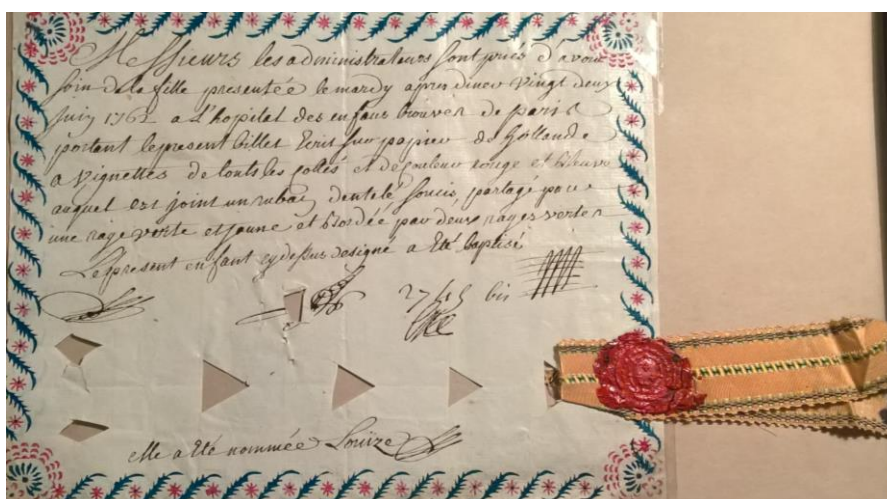 Messieurs les administrateurs sont priés d'avoir
soin de la fille presentée le mardy apres diner vingt deux
juin 1762 a L'hopital des enfans trouvés de paris
portant le present billet Ecrit sur papier de hollande
a vignettes de touts les cottés et de couleur rouge et bleuve
auquel est joint un ruban dentelé soucis, partagé par
une raye verte et jaune et bordée par deux rayes vertes
Le present enfant cy dessus designé a Eté baptisé
bis
elle a Eté nommée Louïze